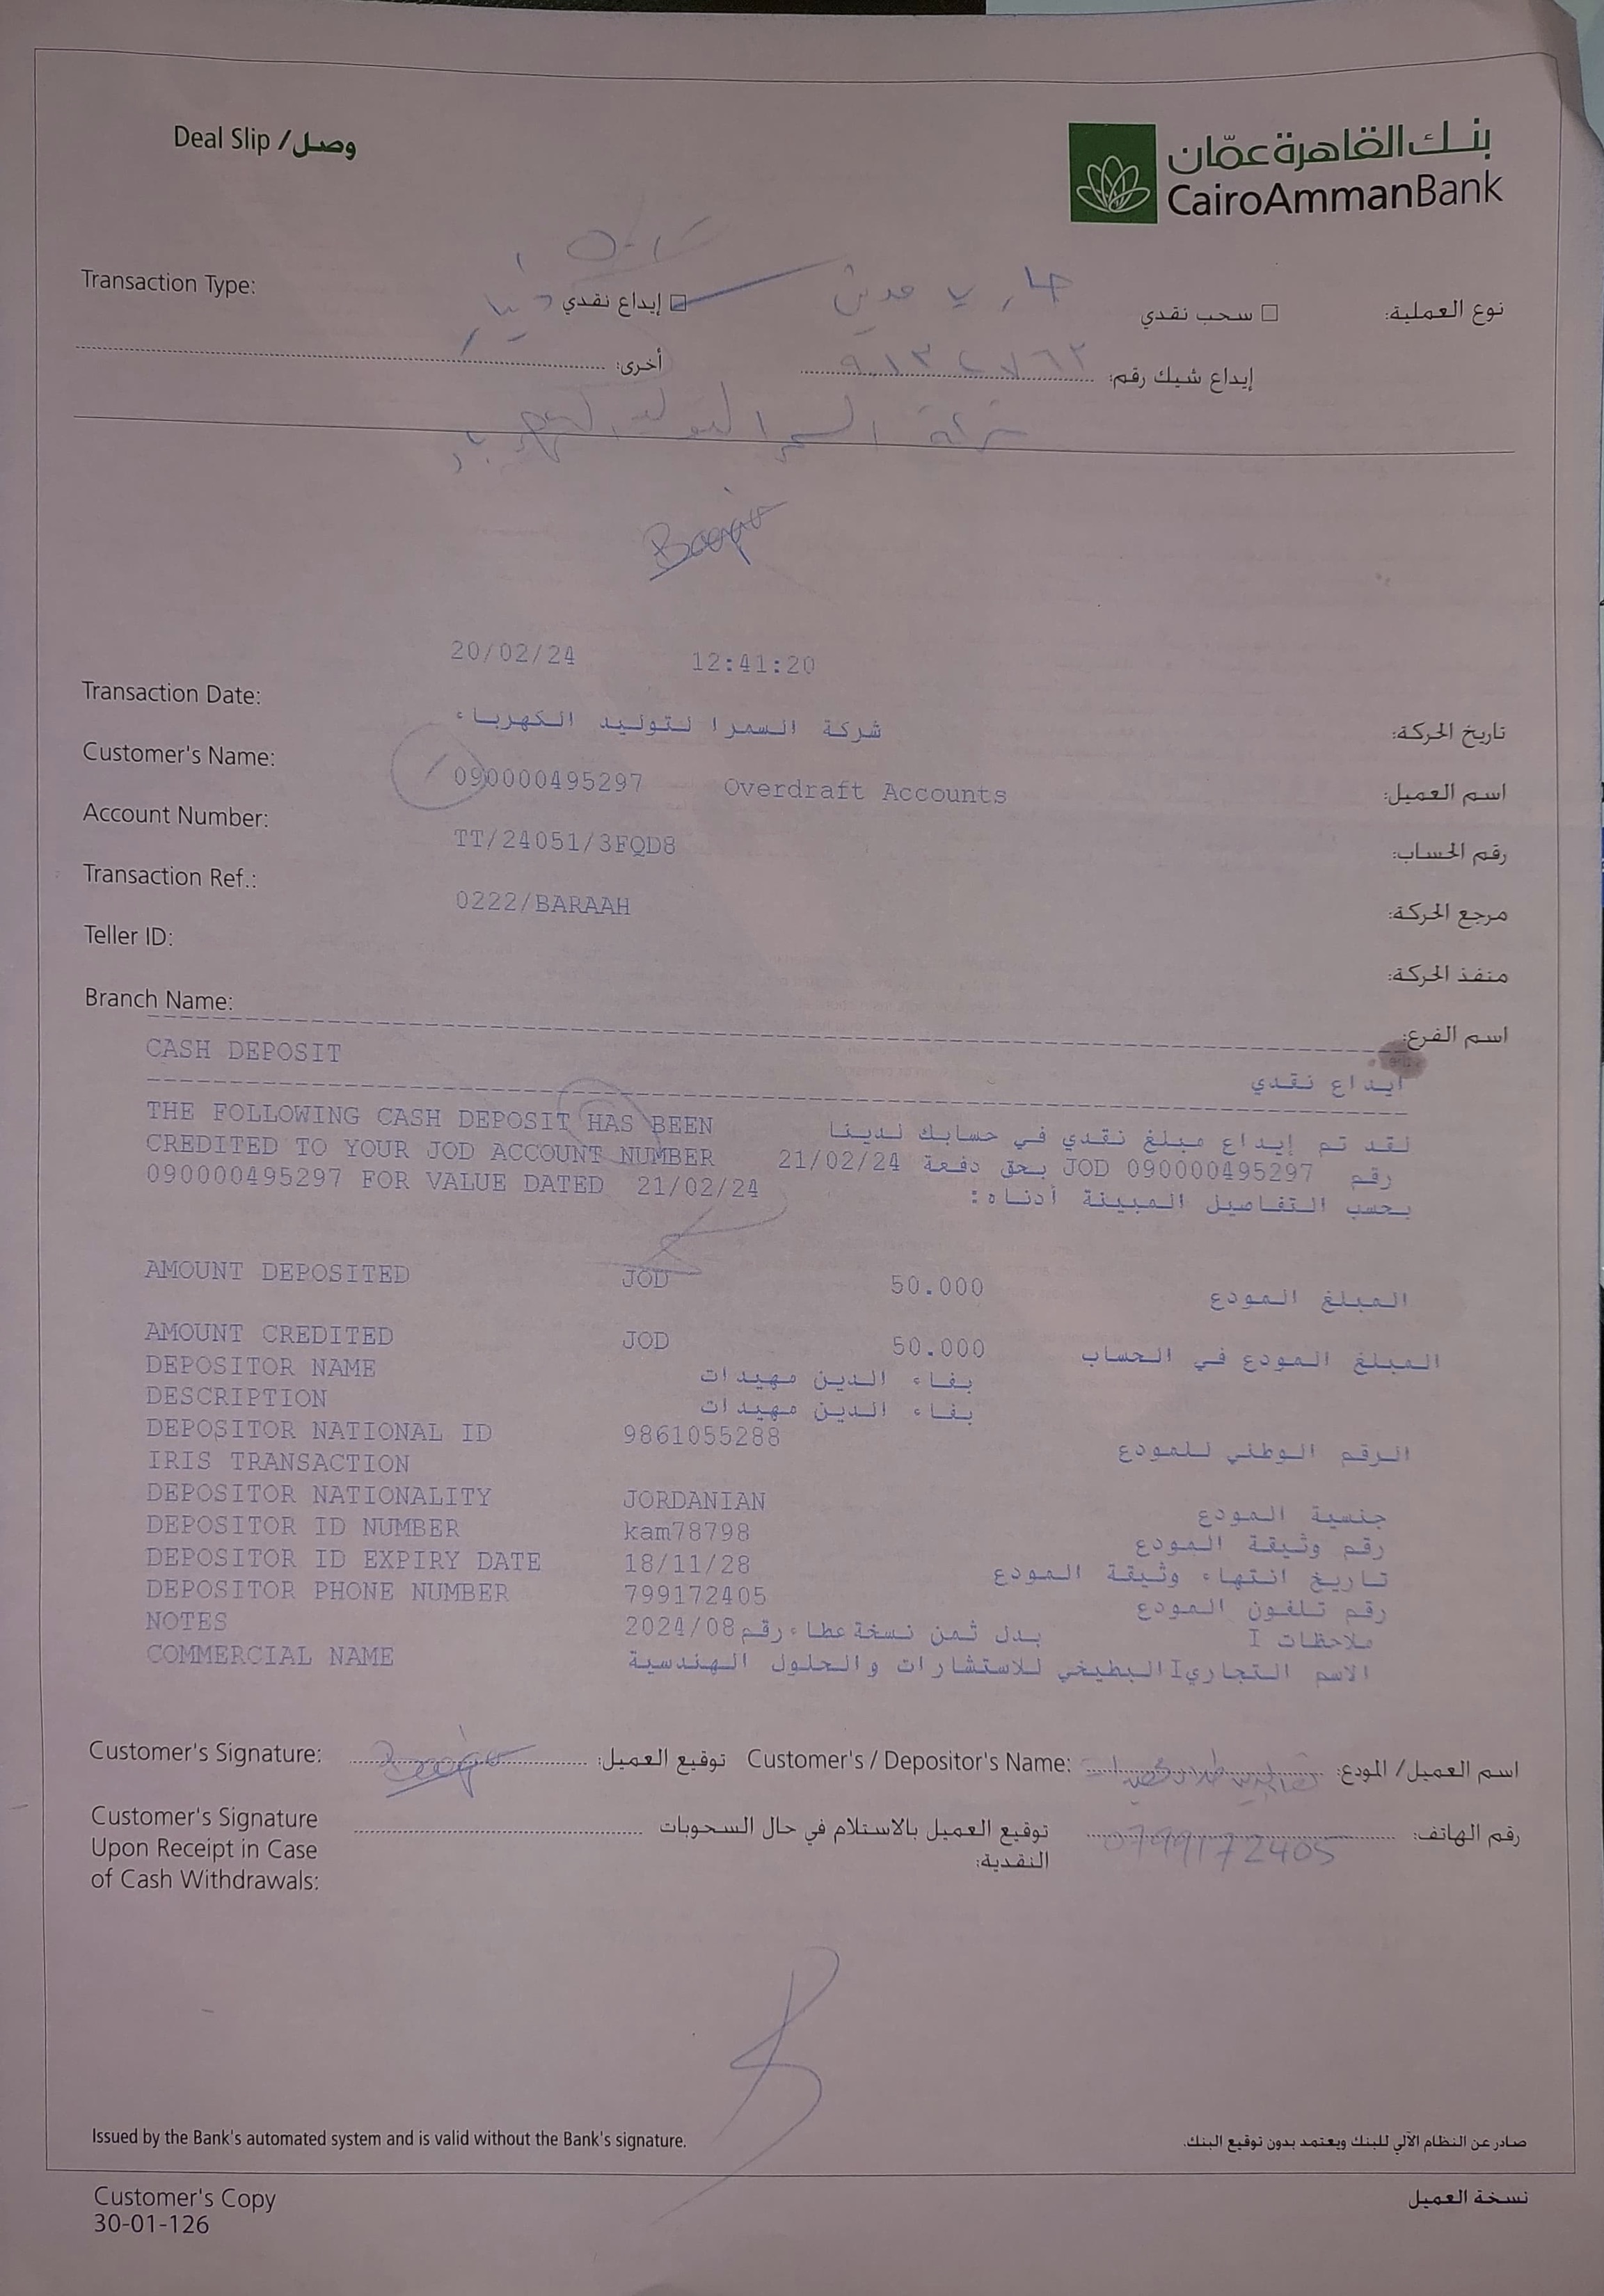 Deal Slip / وصل
بنك القاهرة عمّان
CairoAmmanBank
Transaction Type:
نوع العملية:
☐ سحب نقدي
☐ إيداع نقدي
دينار
إيداع شيك رقم:
أخرى:
شركة السمرا لتوليد الكهرباء
20/02/24 12:41:20
Transaction Date: تاريخ الحركة:
شركة السمرا لتوليد الكهرباء
Customer's Name: اسم العميل:
090000495297 Overdraft Accounts
Account Number: رقم الحساب:
TT/24051/3FQD8
Transaction Ref.: مرجع الحركة:
0222/BARAAH
Teller ID: منفذ الحركة:
Branch Name: اسم الفرع:
CASH DEPOSIT ايداع نقدي
THE FOLLOWING CASH DEPOSIT HAS BEEN لقد تم إيداع مبلغ نقدي في حسابك لدينا
CREDITED TO YOUR JOD ACCOUNT NUMBER رقم 090000495297 JOD بحق دفعة 21/02/24
090000495297 FOR VALUE DATED 21/02/24 بحسب التفاصيل المبينة أدناه:
AMOUNT DEPOSITED JOD 50.000 المبلغ المودع
AMOUNT CREDITED JOD 50.000 المبلغ المودع في الحساب
DEPOSITOR NAME بفاء الدين مهيدات
DESCRIPTION بفاء الدين مهيدات
DEPOSITOR NATIONAL ID 9861055288 الرقم الوطني للمودع
IRIS TRANSACTION
DEPOSITOR NATIONALITY JORDANIAN جنسية المودع
DEPOSITOR ID NUMBER kam78798 رقم وثيقة المودع
DEPOSITOR ID EXPIRY DATE 18/11/28 تاريخ انتهاء وثيقة المودع
DEPOSITOR PHONE NUMBER 799172405 رقم تلفون المودع
NOTES بدل ثمن نسخة عطاء رقم 2024/08 ملاحظات I
COMMERCIAL NAME الاسم التجاريI البطيخي للاستشارات والحلول الهندسية
Customer's Signature: توقيع العميل: Customer's / Depositor's Name: اسم العميل/ المودع:
Customer's Signature
Upon Receipt in Case
of Cash Withdrawals:
توقيع العميل بالاستلام في حال السحوبات
النقدية:
رقم الهاتف: 0799172405
Issued by the Bank's automated system and is valid without the Bank's signature.
صادر عن النظام الآلي للبنك ويعتمد بدون توقيع البنك.
Customer's Copy نسخة العميل
30-01-126